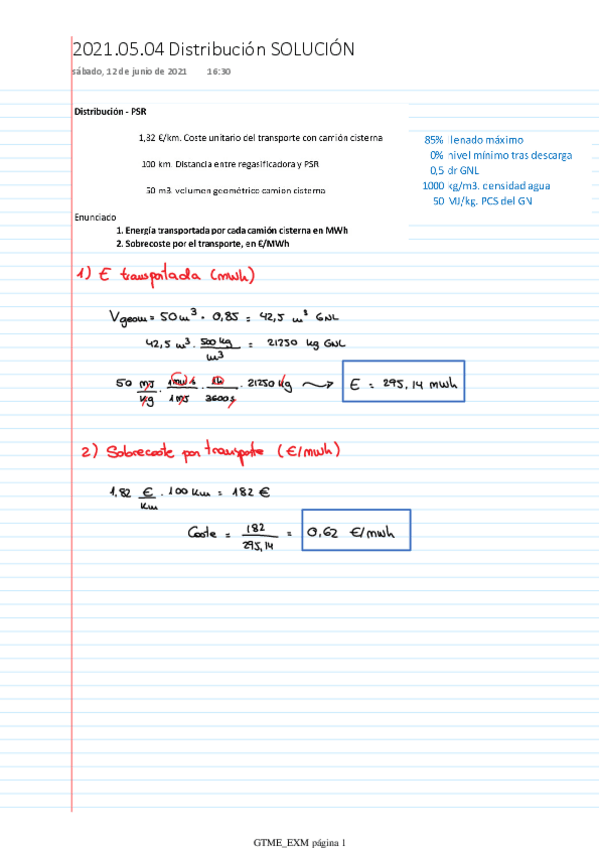 2021.05.04 Distribución SOLUCIÓN
sábado, 12 de junio de 2021 16:30
Distribución - PSR
1,82 €/km. Coste unitario del transporte con camión cisterna
100 km. Distancia entre regasificadora y PSR
50 m3. volumen geométrico camion cisterna
85% llenado máximo
0% nivel mínimo tras descarga
0,5 dr GNL
1000 kg/m3. densidad agua
50 MJ/kg. PCS del GN
Enunciado
1. Energía transportada por cada camión cisterna en MWh
2. Sobrecoste por el transporte, en €/MWh
1) E transportada (mwh)
Vgeom = 50 m³ · 0,85 = 42,5 m³ GNL
42,5 m³ · 500 kg / m³ = 21250 kg GNL
50 MJ/kg · 1MW·s/1MJ · 1h/3600s · 21250 kg → E = 295,14 mwh
2) Sobrecoste por transporte (€/mwh)
1,82 €/km · 100 km = 182 €
Coste = 182/295,14 = 0,62 €/mwh
GTME_EXM página 1